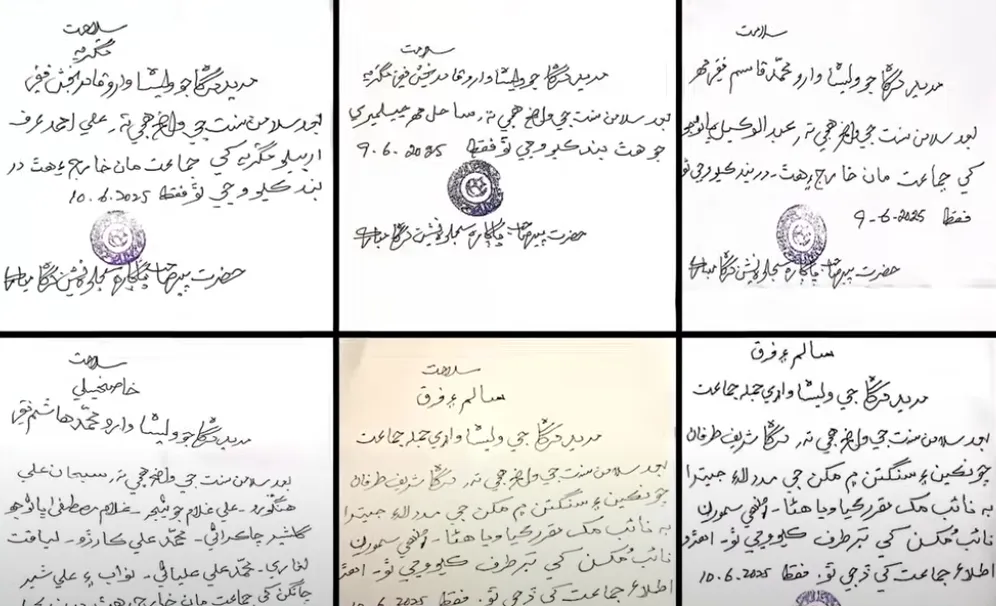 سلامت
مگريو
مريد درگاھ جو وليٽا وارو قادر بخش فقير
بعد سلامن سنت جي واضح هجي تہ علي احمد عرف
اربيلو مگريو کي جماعت مان خارج ۽ هٿ در
بند ڪيو وڃي ٿو فقط 10.6.2025
حضرت پير صاحب پاڳارہ سجادہ نشين درگاھ
سلامت
مريد درگاھ جو وليٽا وارو قادر بخش فقير مگريو
بعد سلامن سنت جي واضح هجي تہ ساحل مهر جيسلميري
جو هٿ بند ڪيو وڃي ٿو فقط 9.6.2025
حضرت پير صاحب پاڳارہ سجادہ نشين درگاھ
سلامت
مريد درگاھ جو وليٽا وارو محمد قاسم فقير مهر
بعد سلامن سنت جي واضح هجي تہ عبدالوڪيل
کي جماعت مان خارج ۽ هٿ۔ در بند ڪيو وڃي ٿو
فقط 9-6-2025
حضرت پير صاحب پاڳارہ سجادہ نشين درگاھ
سلامت
خاصخيلي
مريد درگاھ جو وليٽا وارو محمد هاشم فقير
بعد سلامن سنت جي واضح هجي تہ سبحان علي
هنڱورو۔ علي غلام جوڻيجو۔ غلام مصطفيٰ
گلشير چاڪراڻي۔ محمد علي ڪارڙو۔ لياقت
لغاري۔ محمد علي علياڻي۔ نواب ۽ علي شير
کي جماعت مان خارج
سلامت
سالم ۽ فرق
مريد درگاھ جي وليٽا واري جملہ جماعت
بعد سلامن سنت جي واضح هجي تہ درگاھ شريف طرفان
چونڪين ۽ سنگتن ۾ مکن جي مدد لاءِ جيترا
بہ نائب مک مقرر ڪيا ويا هئا۔ انهي سمورن
نائب مُکن کي برطرف ڪيو وڃي ٿو۔ اهڙو
اطلاع جماعت کي ڏجي ٿو۔ فقط 10.6.2025
سالم ۽ فرق
مريد درگاھ جي وليٽا واري جملہ جماعت
بعد سلامن سنت جي واضح هجي تہ درگاھ شريف طرفان
چونڪين ۽ سنگتن ۾ مکن جي مدد لاءِ جيترا
بہ نائب مک مقرر ڪيا ويا هئا۔ انهي سمورن
نائب مُکن کي برطرف ڪيو وڃي ٿو۔ اهڙو
اطلاع جماعت کي ڏجي ٿو۔ فقط 10.6.2025